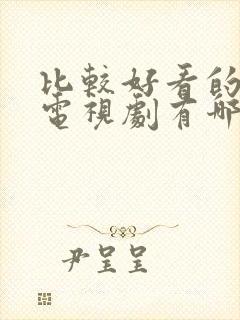 比較好看的
電視劇有哪
尹呈呈